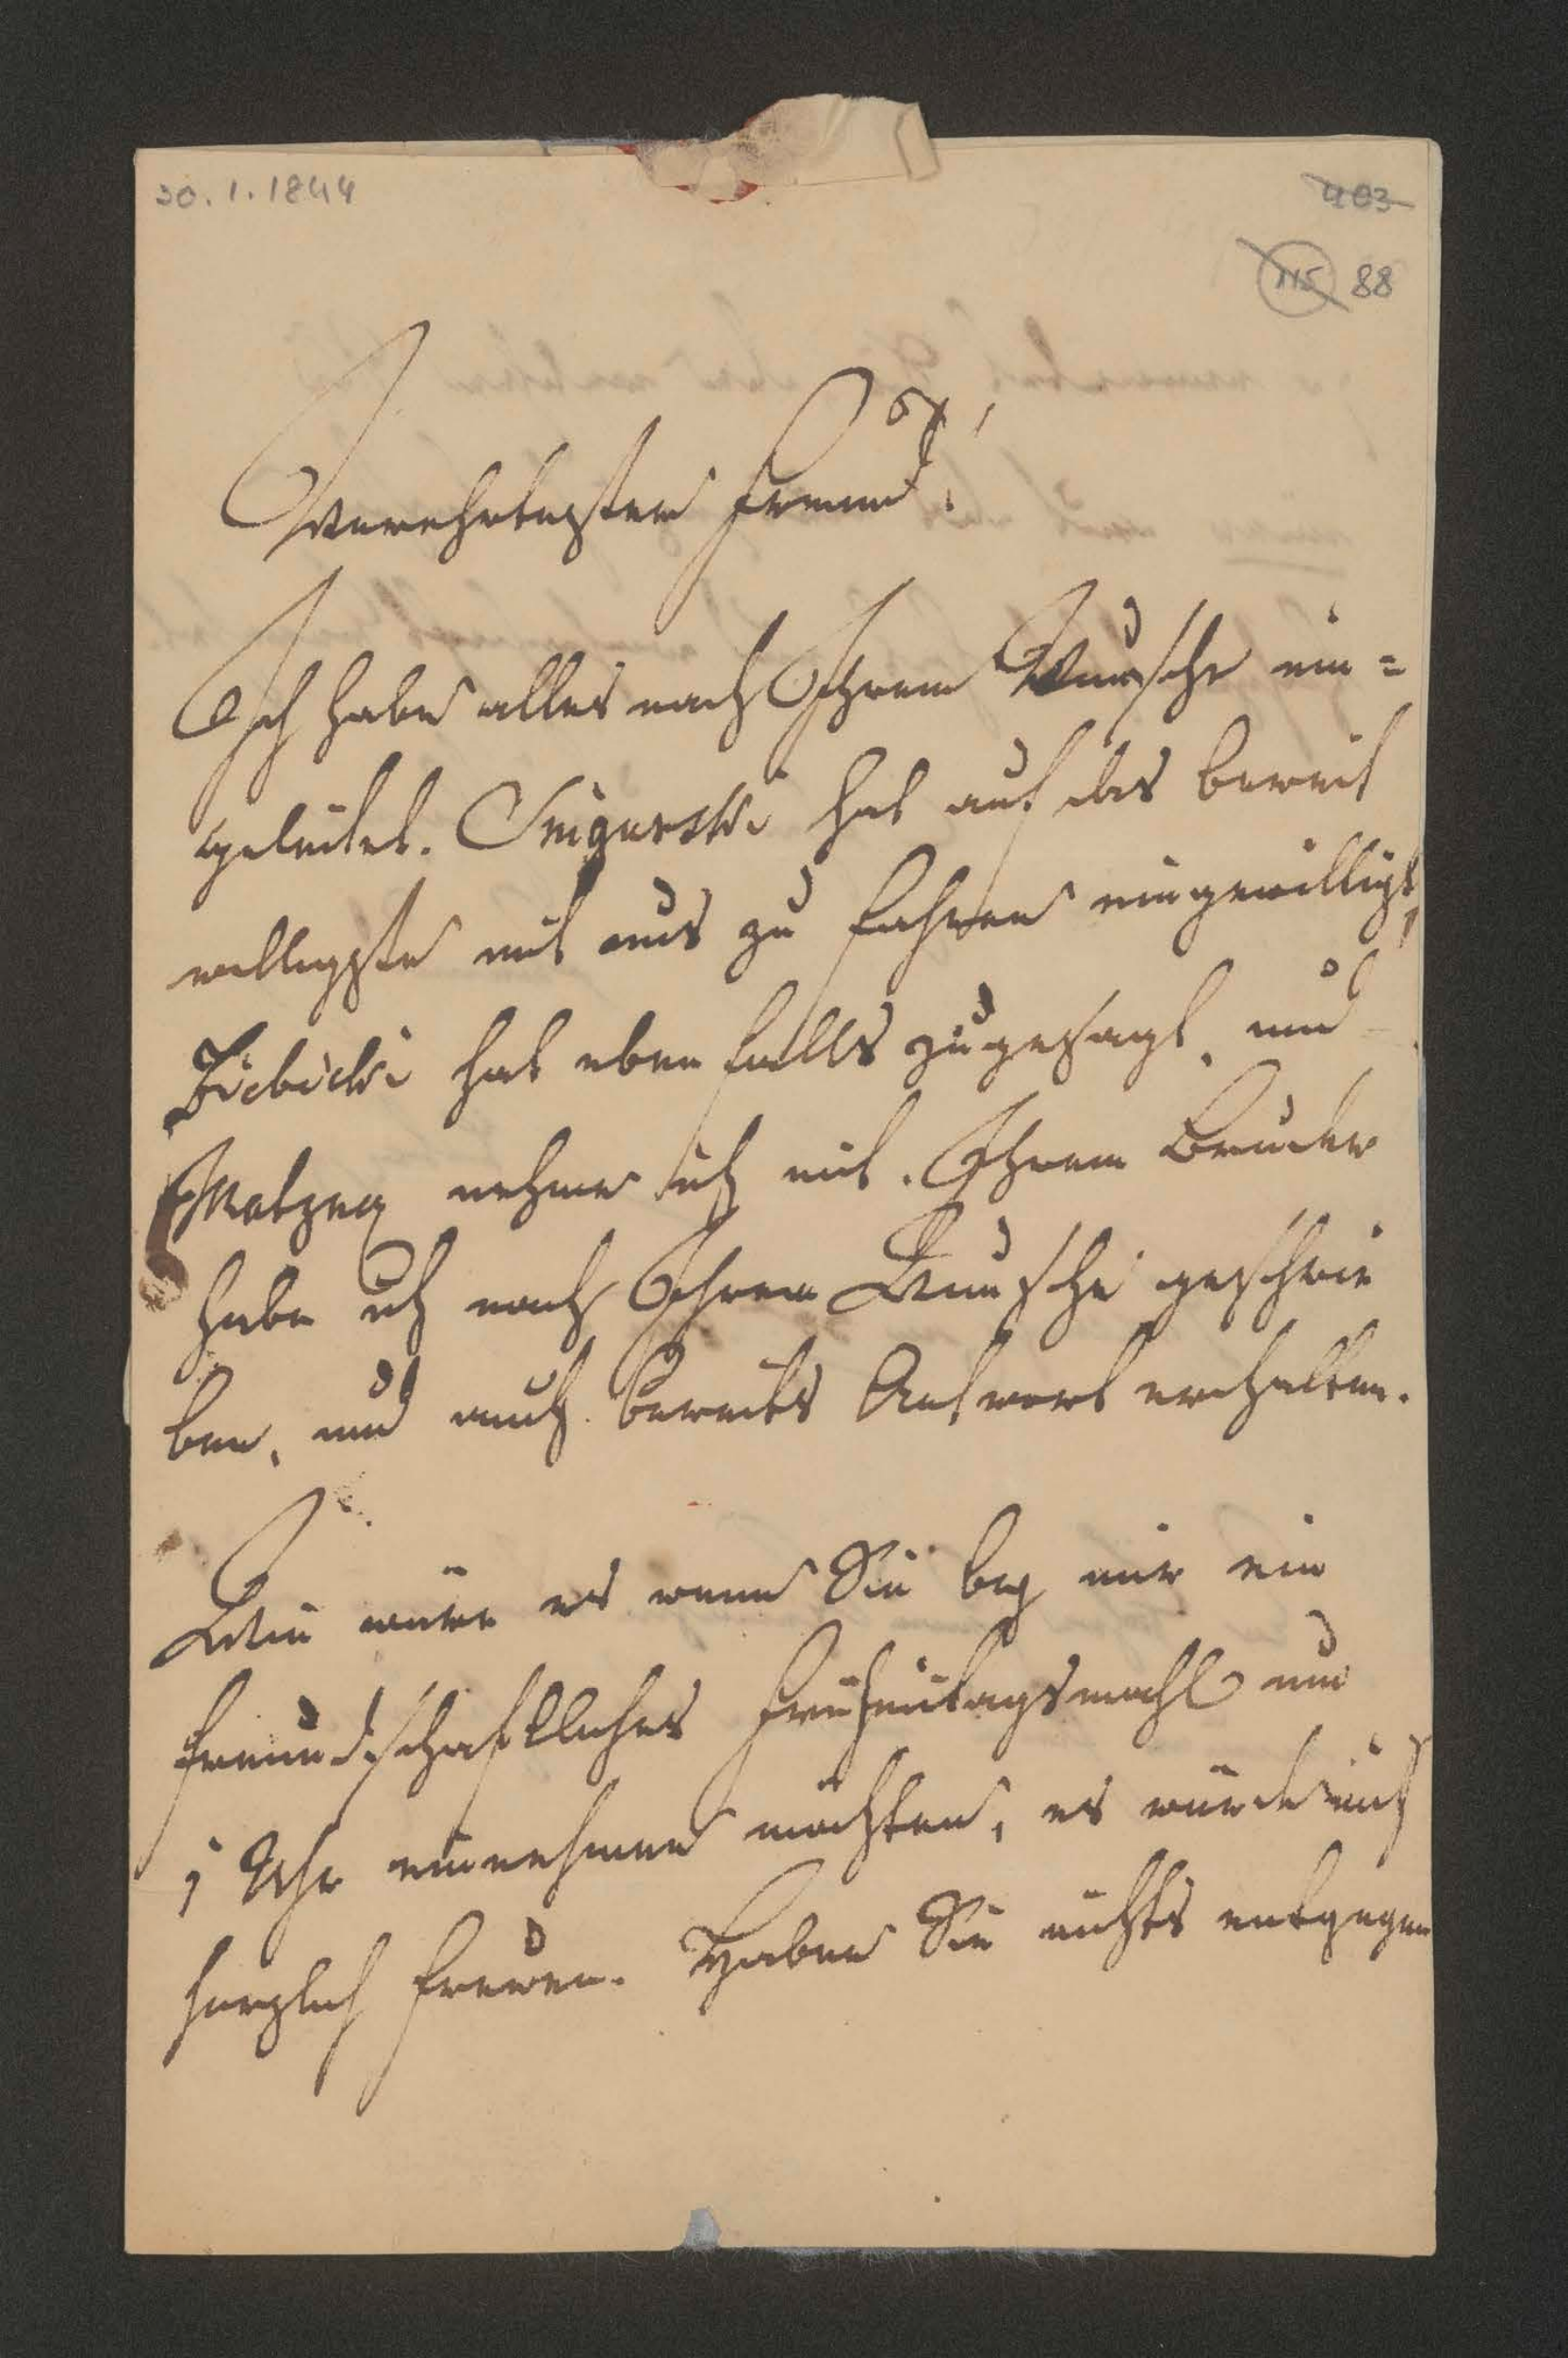 30.1.1844
403
115 88
Verehrtester Freund!
Ich habe alles nach Ihrem Wunsche ein=
geleitet. hat auf das bereit
willigste mit uns zu fahren eingewilligt,
Zübicki hat eben falls zugesagt, und
nehme ich mit. Ihrem Bruder
habe ich nach Ihrem Wunsche geschrie
ben, und auch bereits Antwort erhalten.
Wie wäre es wenn Sie bey mir ein
freundschaftliches Frühmitagsmahl um
1 Uhr einnehmen möchten, es würde mich
herzlich freuen. Haben Sie nichts entgegen